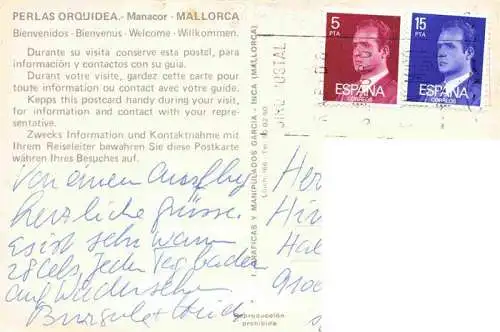 PERLAS ORQUIDEA.- Manacor - MALLORCA
Bienvenidos - Bienvenus - Welcome - Willkommen.
Durante su visita conserve esta postal, para
información y contactos con su guía.
Durant votre visite, gardez cette carte pour
toute information ou contact avec votre guide.
Kepps this postcard handy during your visit,
for information and contact with your repre-
sentative.
Zwecks Information und Kontaktnahme mit
Ihrem Reiseleiter bewahren Sie diese Postkarte
währen Ihres Besuches auf.
Von einem Ausflug
herzliche Grüsse.
Es ist sehr warm
28 Cels, Jeden Tag baden
auf Wiedersehn
GRAFICAS Y MANIPULADOS GARCIA - INCA (MALLORCA)
Reproducción
prohibida
5
PTA
ESPAÑA
CORREOS
15
PTA
ESPAÑA
CORREOS
POSTAL
Her
Hir